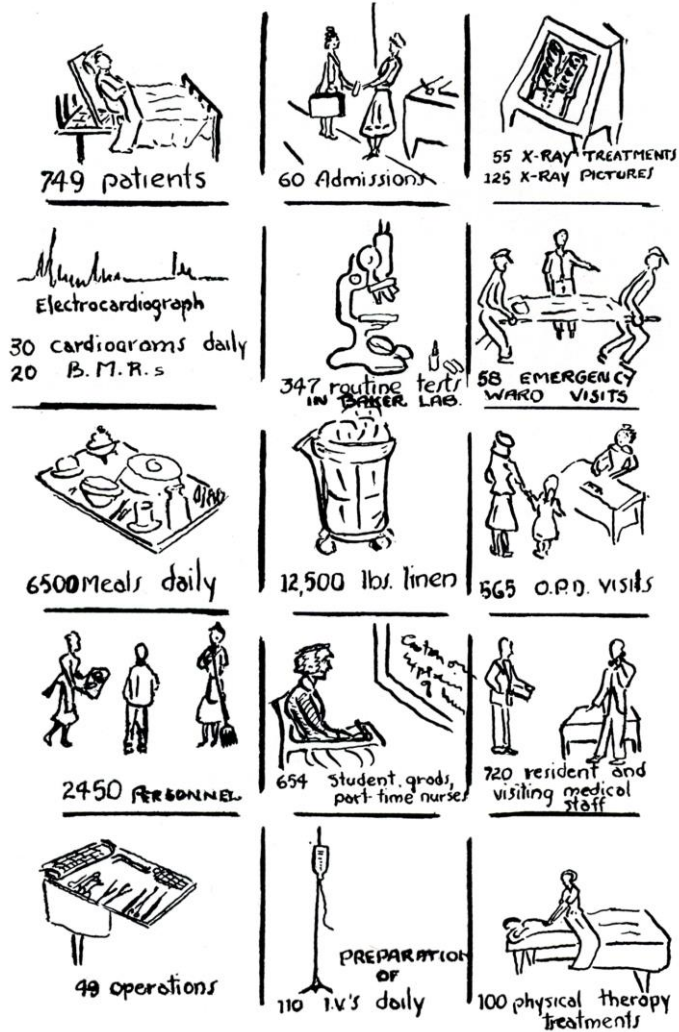 749 patients
60 Admissions
55 X-RAY TREATMENTS
125 X-RAY PICTURES
Electrocardiograph
30 cardiograms daily
20 B.M.R.s
347 routine tests
IN BAKER LAB.
58 EMERGENCY
WARD VISITS
6500 Meals daily
12,500 lbs. linen
565 O.P.D. VISITS
2450 PERSONNEL
of
654 Student, grads,
part-time nurses
720 resident and
visiting medical
staff
49 operations
PREPARATION
OF
110 I.V.'s daily
100 physical therapy
treatments